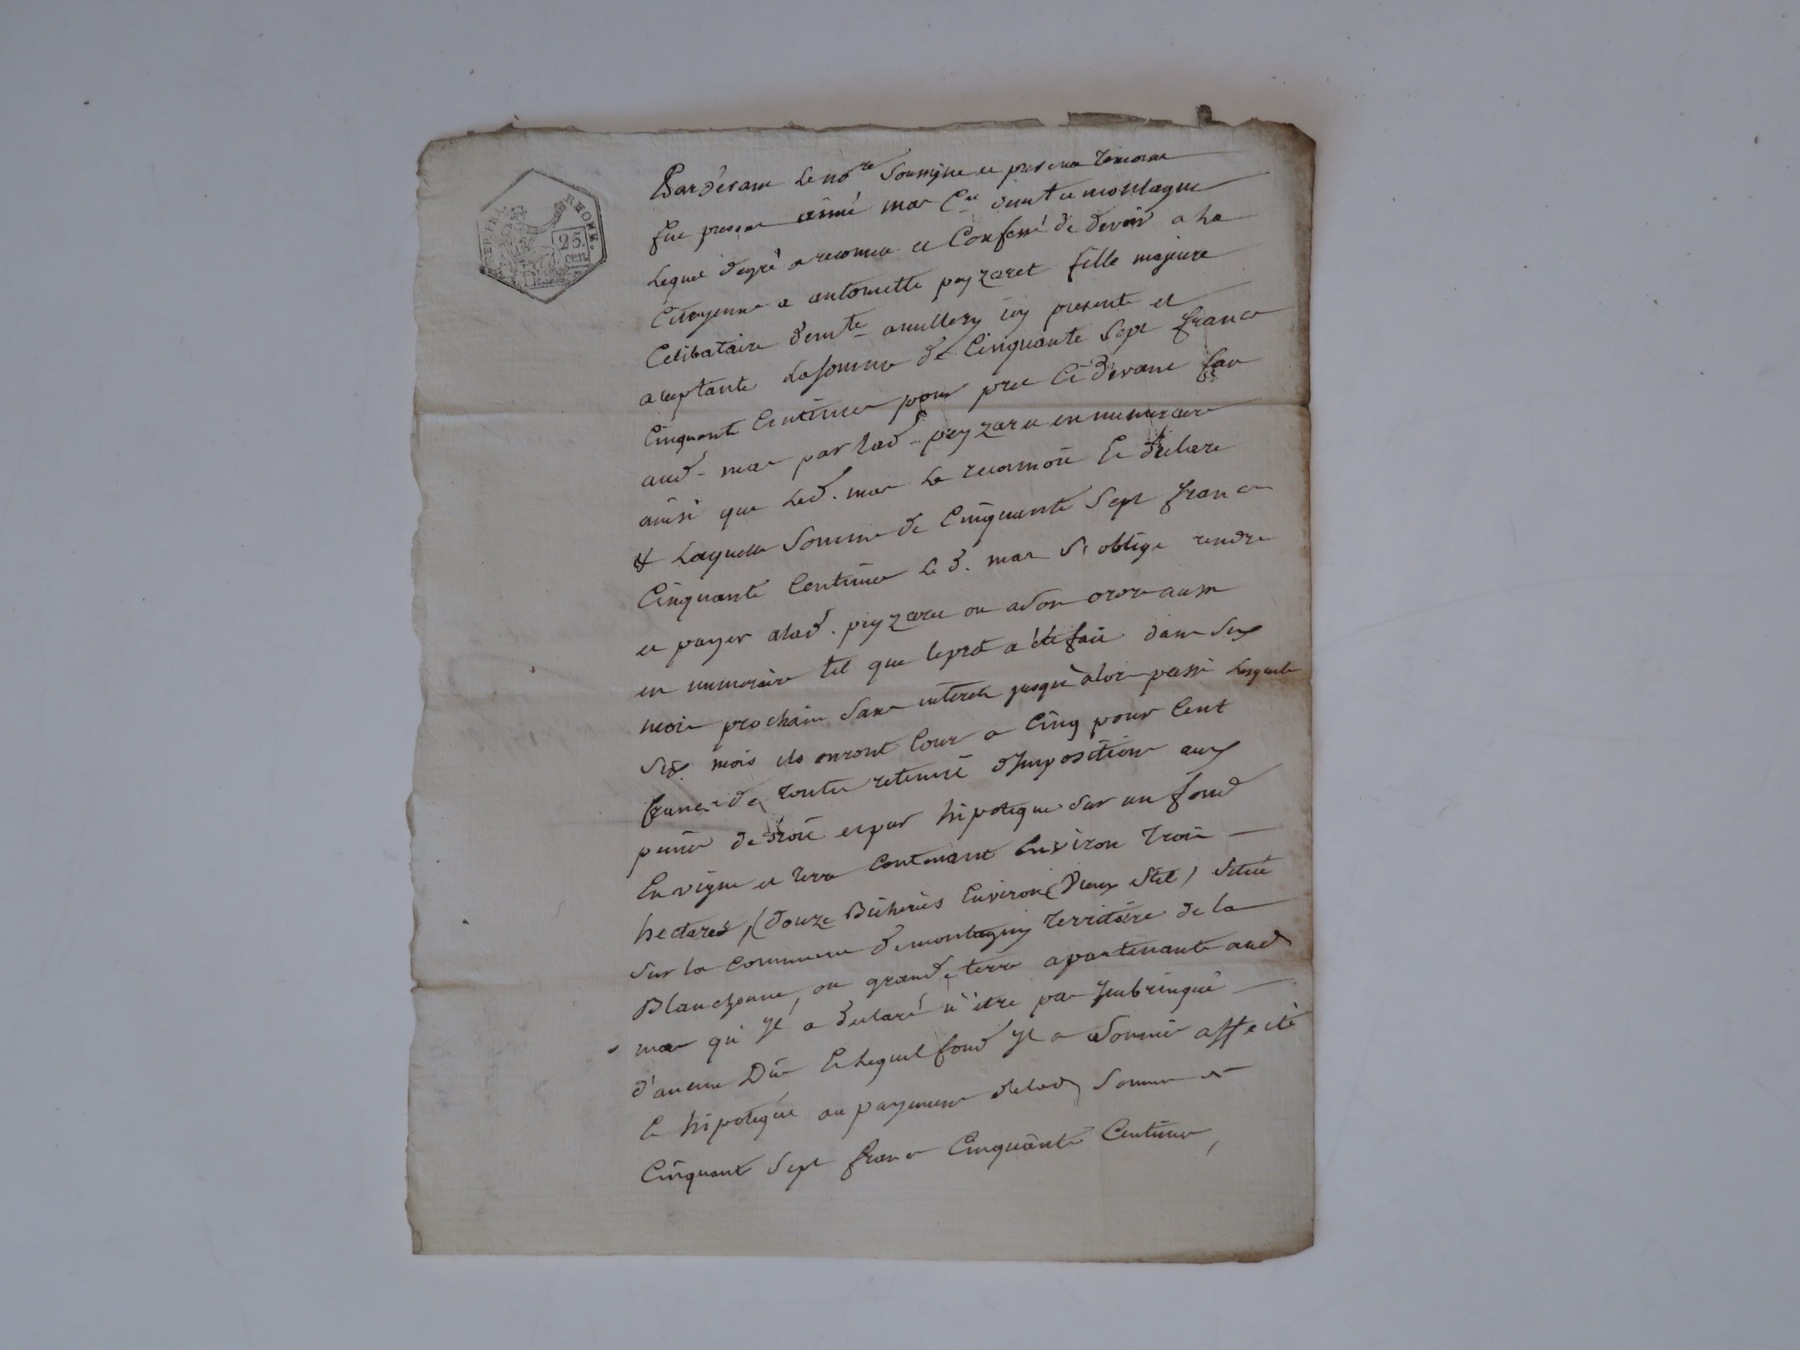 REP. FRA. RHONE.
25. cen.
Pardevant le no.re Soussigné et presens temoins
fut present aimé mas C.en demt.e montagni
Lequel degré a reconnu et Confessé de devoir a la
Citoyenne a antoinette peyzaret fille majeure
Celibataire demte. amillery icy presente et
aceptante La somme de Cinquante Sept francs
Cinquante Centimes pour pret Ci devant fait
aud. mas par lad. peyzaret en numeraire
ainsi que led. mas le reconnoit et declare
& Laquelle Somme de Cinquante Sept francs
Cinquante Centimes le d. mas s'oblige rendre
et payer a lad. peyzaret ou a son ordre aussi
en numeraire tel que le pret a été fait dans six
mois prochain sans interets jusqu'alors passé lesquels
six mois ils auront Cour a Cinq pour Cent
francs de toute retenue d'Imposition aux
peines de droit et par hipoteque sur un fond
En vigne et terre contenant Environ trois
hectares, (douze Bicherées Environ (vieux stil) situé
sur la commune de montagny territoire de la
Blanchonne, ou grande terre apartenante aud
mas qui yl a declaré n'être pas Imbringué
d'aucune Dûe Et lequel fond yl a Soumis affecté
et hipotequé au payement de lad. somme de
Cinquante Sept francs Cinquante Centimes,